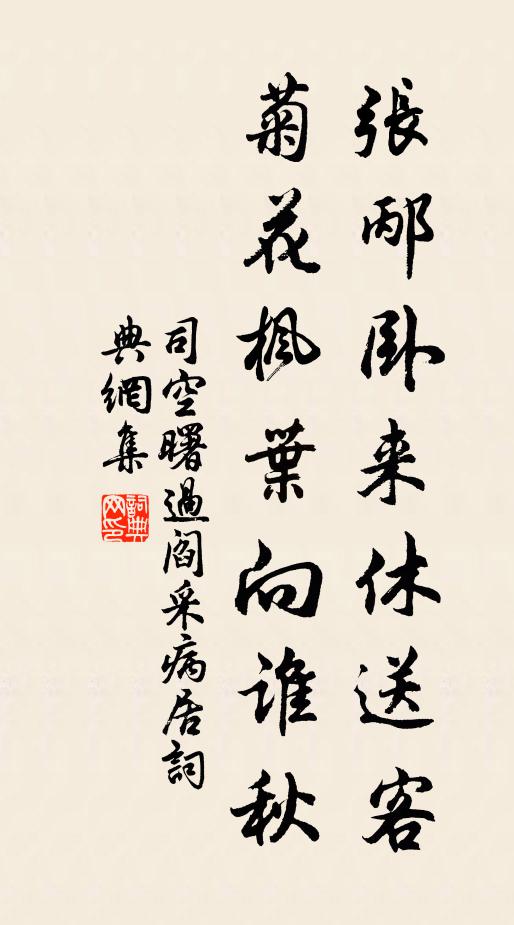 張邴卧来休送客
菊花楓葉向誰秋
司空曙過閻采病居詞
典網集
詞典
网印